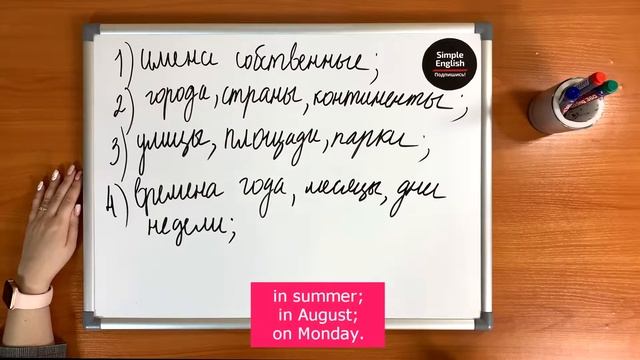 1) имена собственные;
2) города, страны, континенты;
3) улицы, площади, парки;
4) времена года, месяцы, дни
недели;
Simple
English
Подпишись!
in summer;
in August;
on Monday.